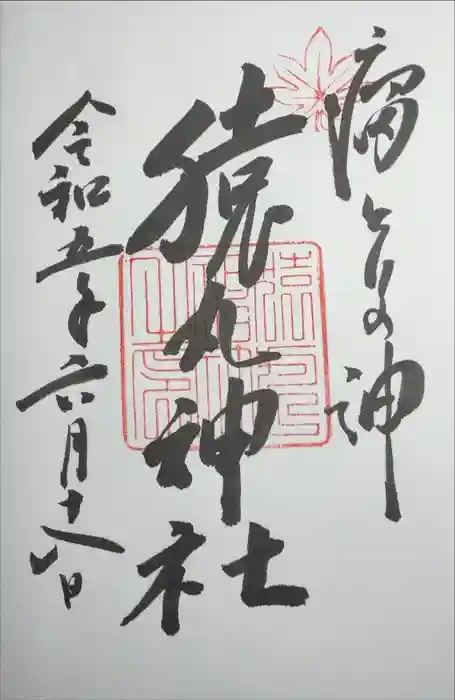 瘤とりの神
猿丸神社
令和五年六月十八日